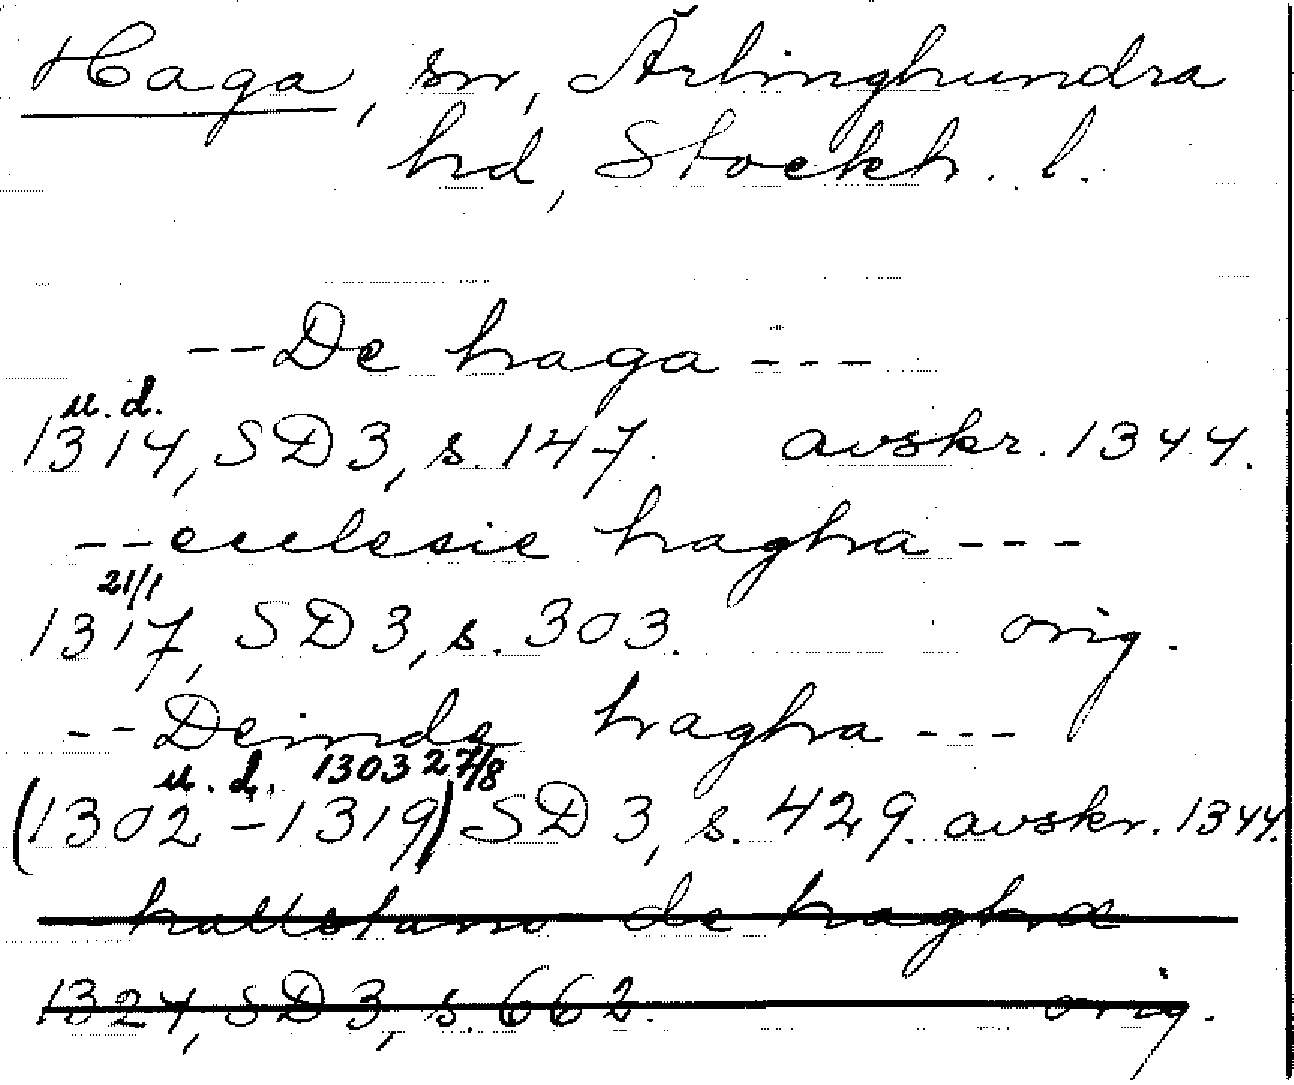 Haga, sn, Ärlinghundra
hd, Stockh. l.
--De haga---
u.d.
1314, SD3, s. 147. avskr. 1344.
--ecclesie haghra---
21/1
1317, SD3, s. 303. orig.
--Deinde haghra---
u.d. 1303 27/8
(1302-1319) SD3, s. 429. avskr. 1344.
hallstano de haghra
1324, SD3, s. 662. orig.